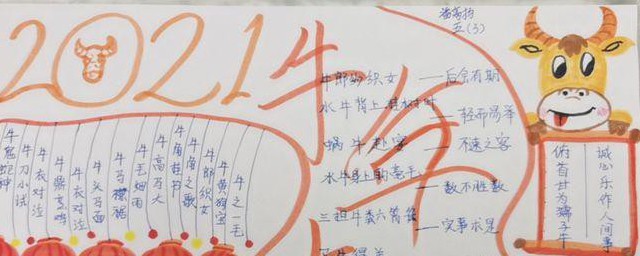 2021牛年
五(3)
牛郎织女——后会有期
——轻而易举
蜗牛赴宴——不速之客
——数不胜数
——实事求是
牛鬼蛇神
牛刀小试
牛衣对泣
牛鼎烹鸡
牛衣对泣
牛头马面
牛马襟裾
牛毛细雨
牛高马大
牛角挂书
牛角之歌
牛郎织女
牛黄狗宝
牛之一毛
俯首甘为孺子牛
诚心乐作人间事